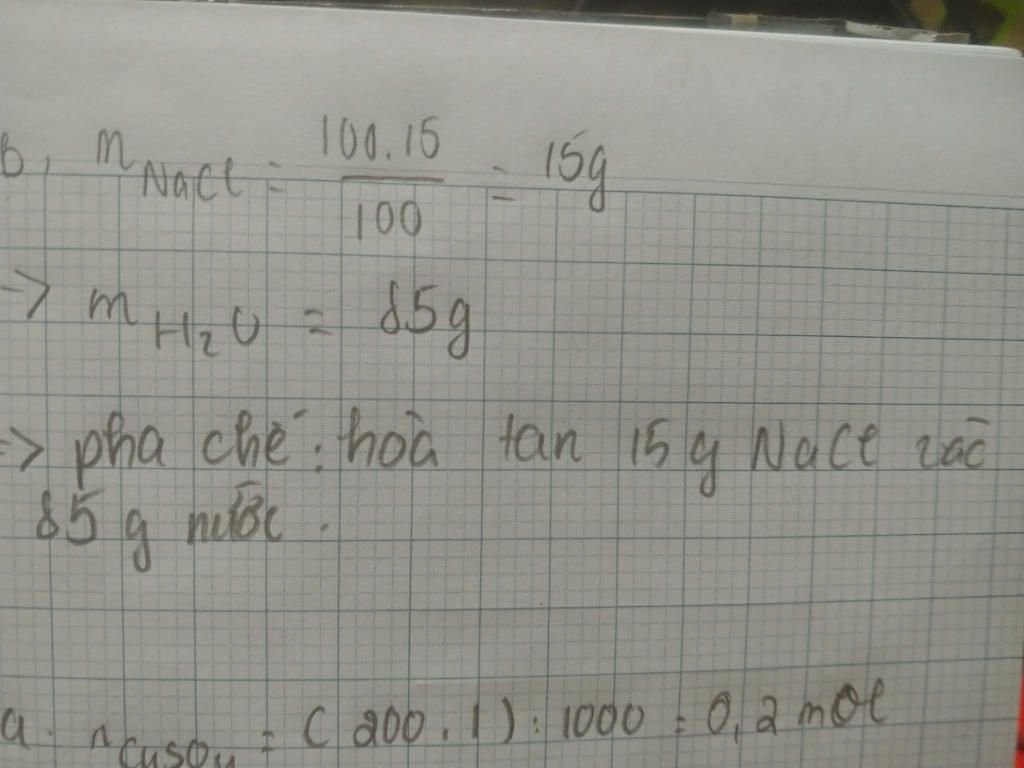 b, m NaCl = 100.15 / 100 = 15g
=> m H2O = 85g
=> pha chế: hoà tan 15g NaCl vào
85g nước.
a. nCuSO4 = (200.1):1000 = 0,2 mol